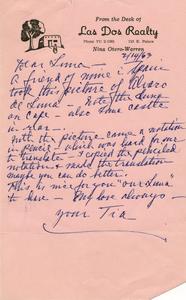 From the Desk of
Las Dos Realty
Phone YU 2-2382 135 E. Palace
Nina Otero-Warren
2/14/63
Dear Luna —
A friend of mine in Spain
took this picture of Alvaro
de Luna — Note the Luna
on Cape — also Luna Castle
in rear —
With the picture came a notation
in pencil — which was hard for me
to translate — I copied the penciled
notation & made the translation
maybe you can do better.
This is nice for you "our Luna"
to have — My love always —
your Tia